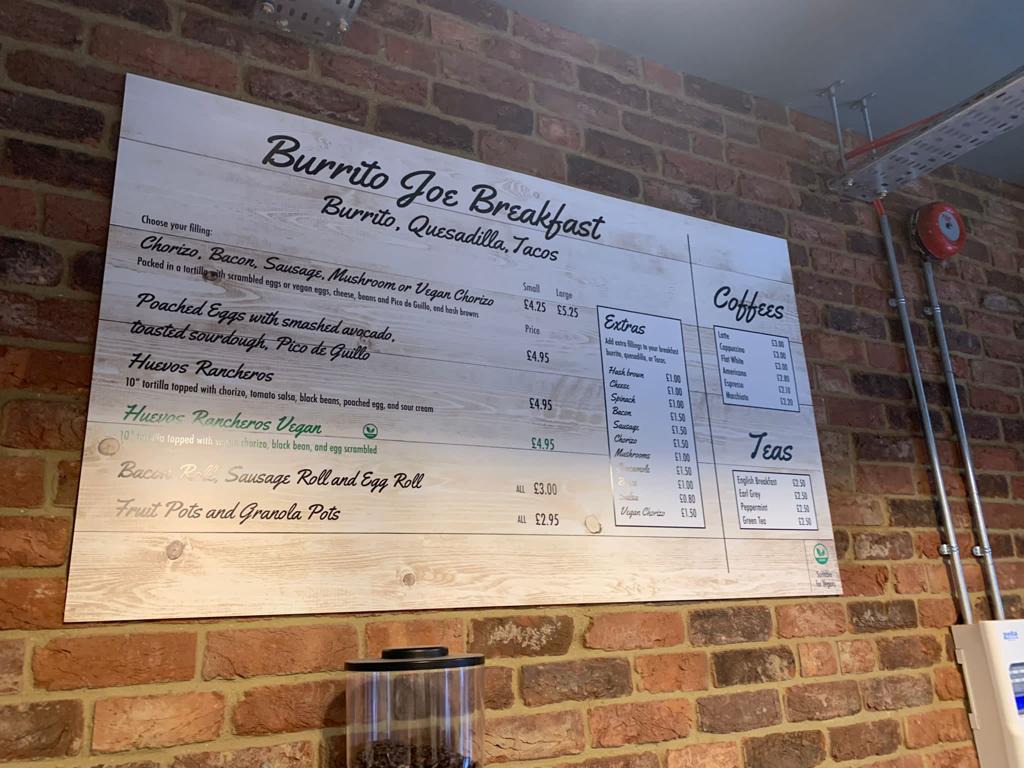 Burrito Joe Breakfast
Burrito, Quesadilla, Tacos
Choose your filling:
Small Large
Chorizo, Bacon, Sausage, Mushroom or Vegan Chorizo £4.25 £5.25
Packed in a tortilla with scrambled eggs or vegan eggs, cheese, beans and Pico de Guillo, and hash browns
Price
Poached Eggs with smashed avocado,
toasted sourdough, Pico de Guillo £4.95
Huevos Rancheros
10" tortilla topped with chorizo, tomato salsa, black beans, poached egg, and sour cream £4.95
Huevos Rancheros Vegan £4.95
10" tortilla topped with vegan chorizo, black bean, and egg scrambled
Bacon Roll, Sausage Roll and Egg Roll ALL £3.00
Fruit Pots and Granola Pots ALL £2.95
Extras
Add extra fillings to your breakfast
burrito, quesadilla, or Tacos.
Hash brown £1.00
Cheese £1.00
Spinach £1.00
Bacon £1.50
Sausage £1.50
Chorizo £1.50
Mushrooms £1.00
£1.50
£1.00
£0.80
Vegan Chorizo £1.50
Coffees
Latte £3.00
Cappuccino £3.00
Flat White £3.00
Americano £2.80
Espresso
Macchiato £2.20
Teas
English Breakfast £2.50
Earl Grey £2.50
Peppermint £2.50
Green Tea £2.50
Suitable
for Vegans